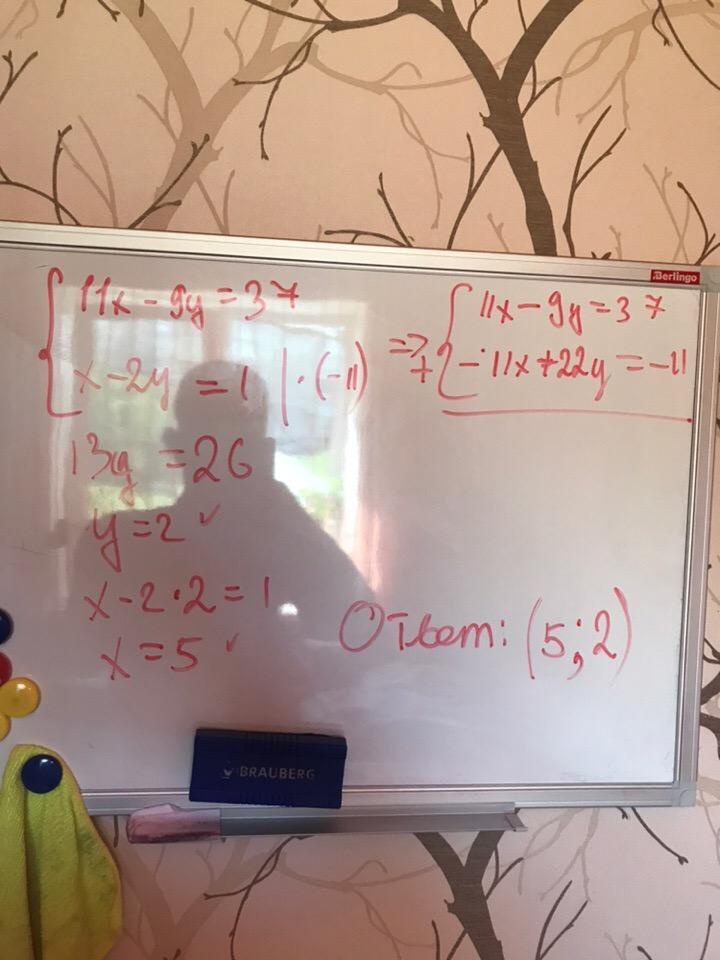 Berlingo
11x - 9y = 37
x - 2y = 1 | · (-11)
=> 11x - 9y = 37
+ -11x + 22y = -11
13y = 26
y = 2 ✓
x - 2 · 2 = 1
x = 5 ✓
Ответ: (5; 2)
BRAUBERG